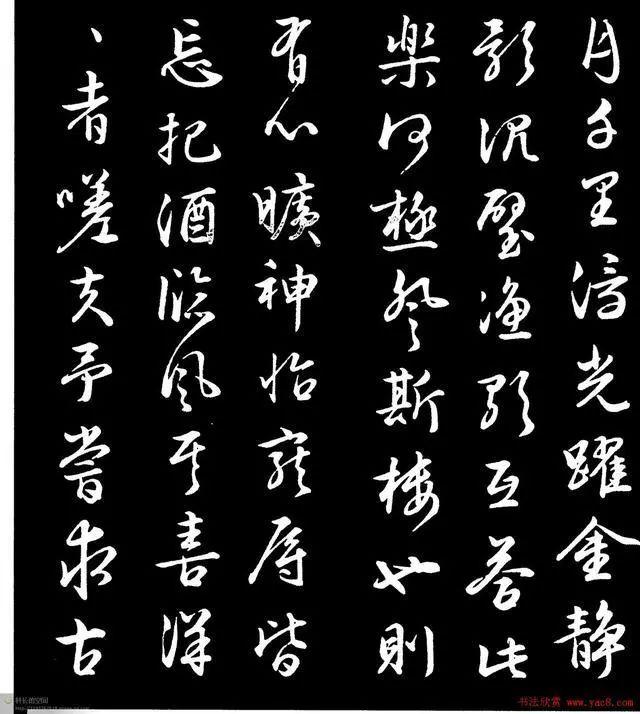 月千里浮光躍金静
影沉璧渔歌互答此
樂何極登斯樓也則
有心曠神怡寵辱皆
忘把酒臨風其喜洋
、者嗟夫予嘗求古
书法欣赏 www.yac8.com